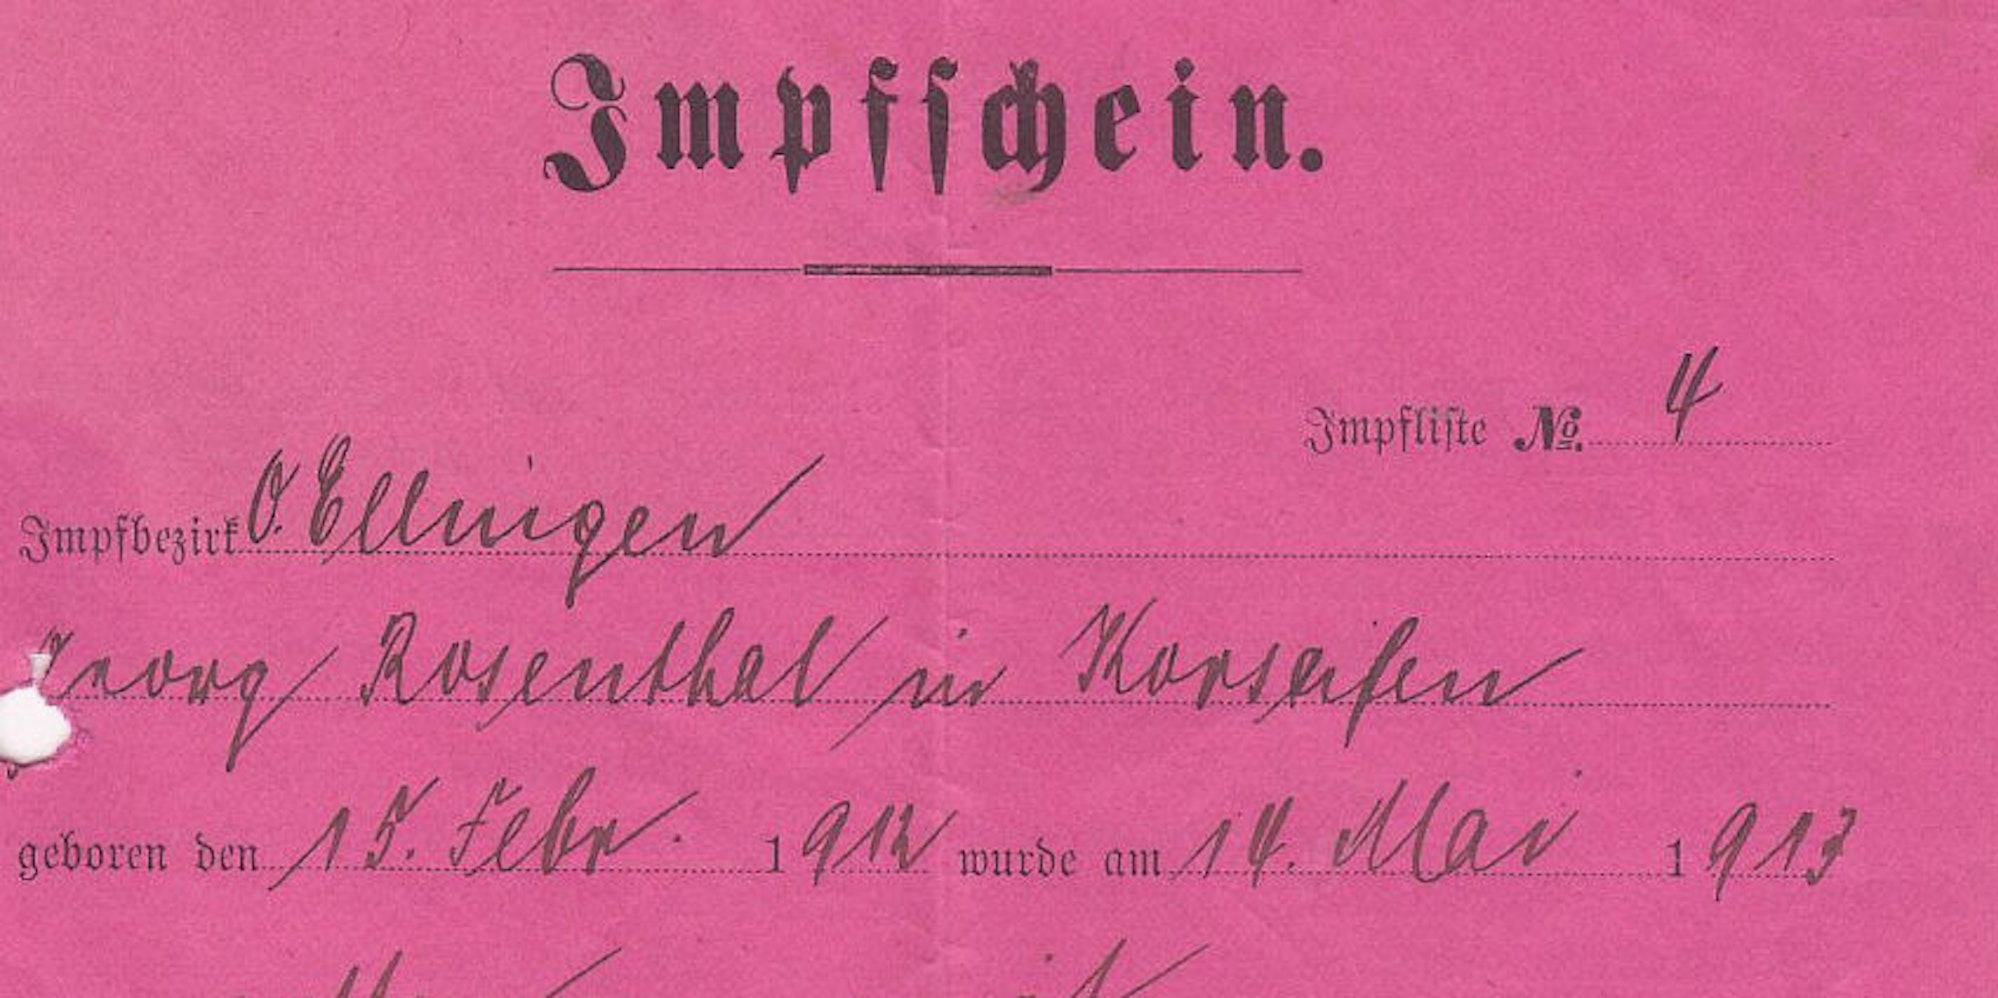 Impfschein.
Impfliste No. 4
Impfbezirk O. Ellingen
Georg Rosenthal in Korseifen
geboren den 15. Febr. 1912 wurde am 14. Mai 1913